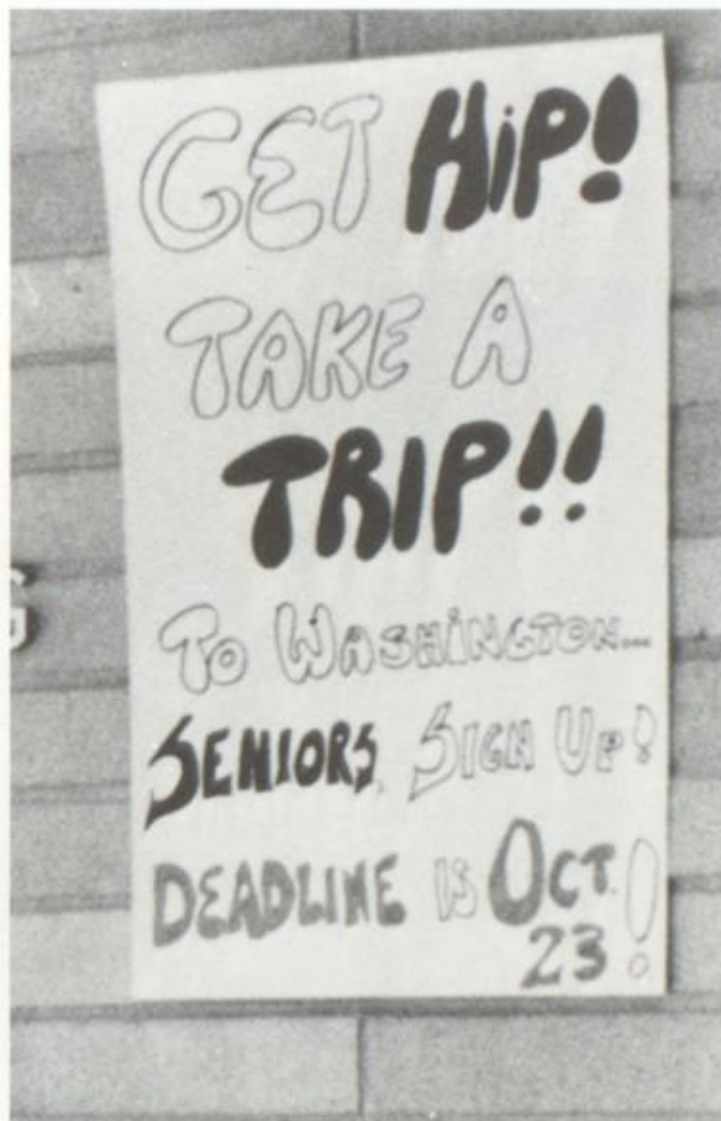 GET HiP!
TAKE A
TRIP!!
To WASHiNGTON...
SENIORS, SIGN UP!
DEADLINE is OCT.
23!